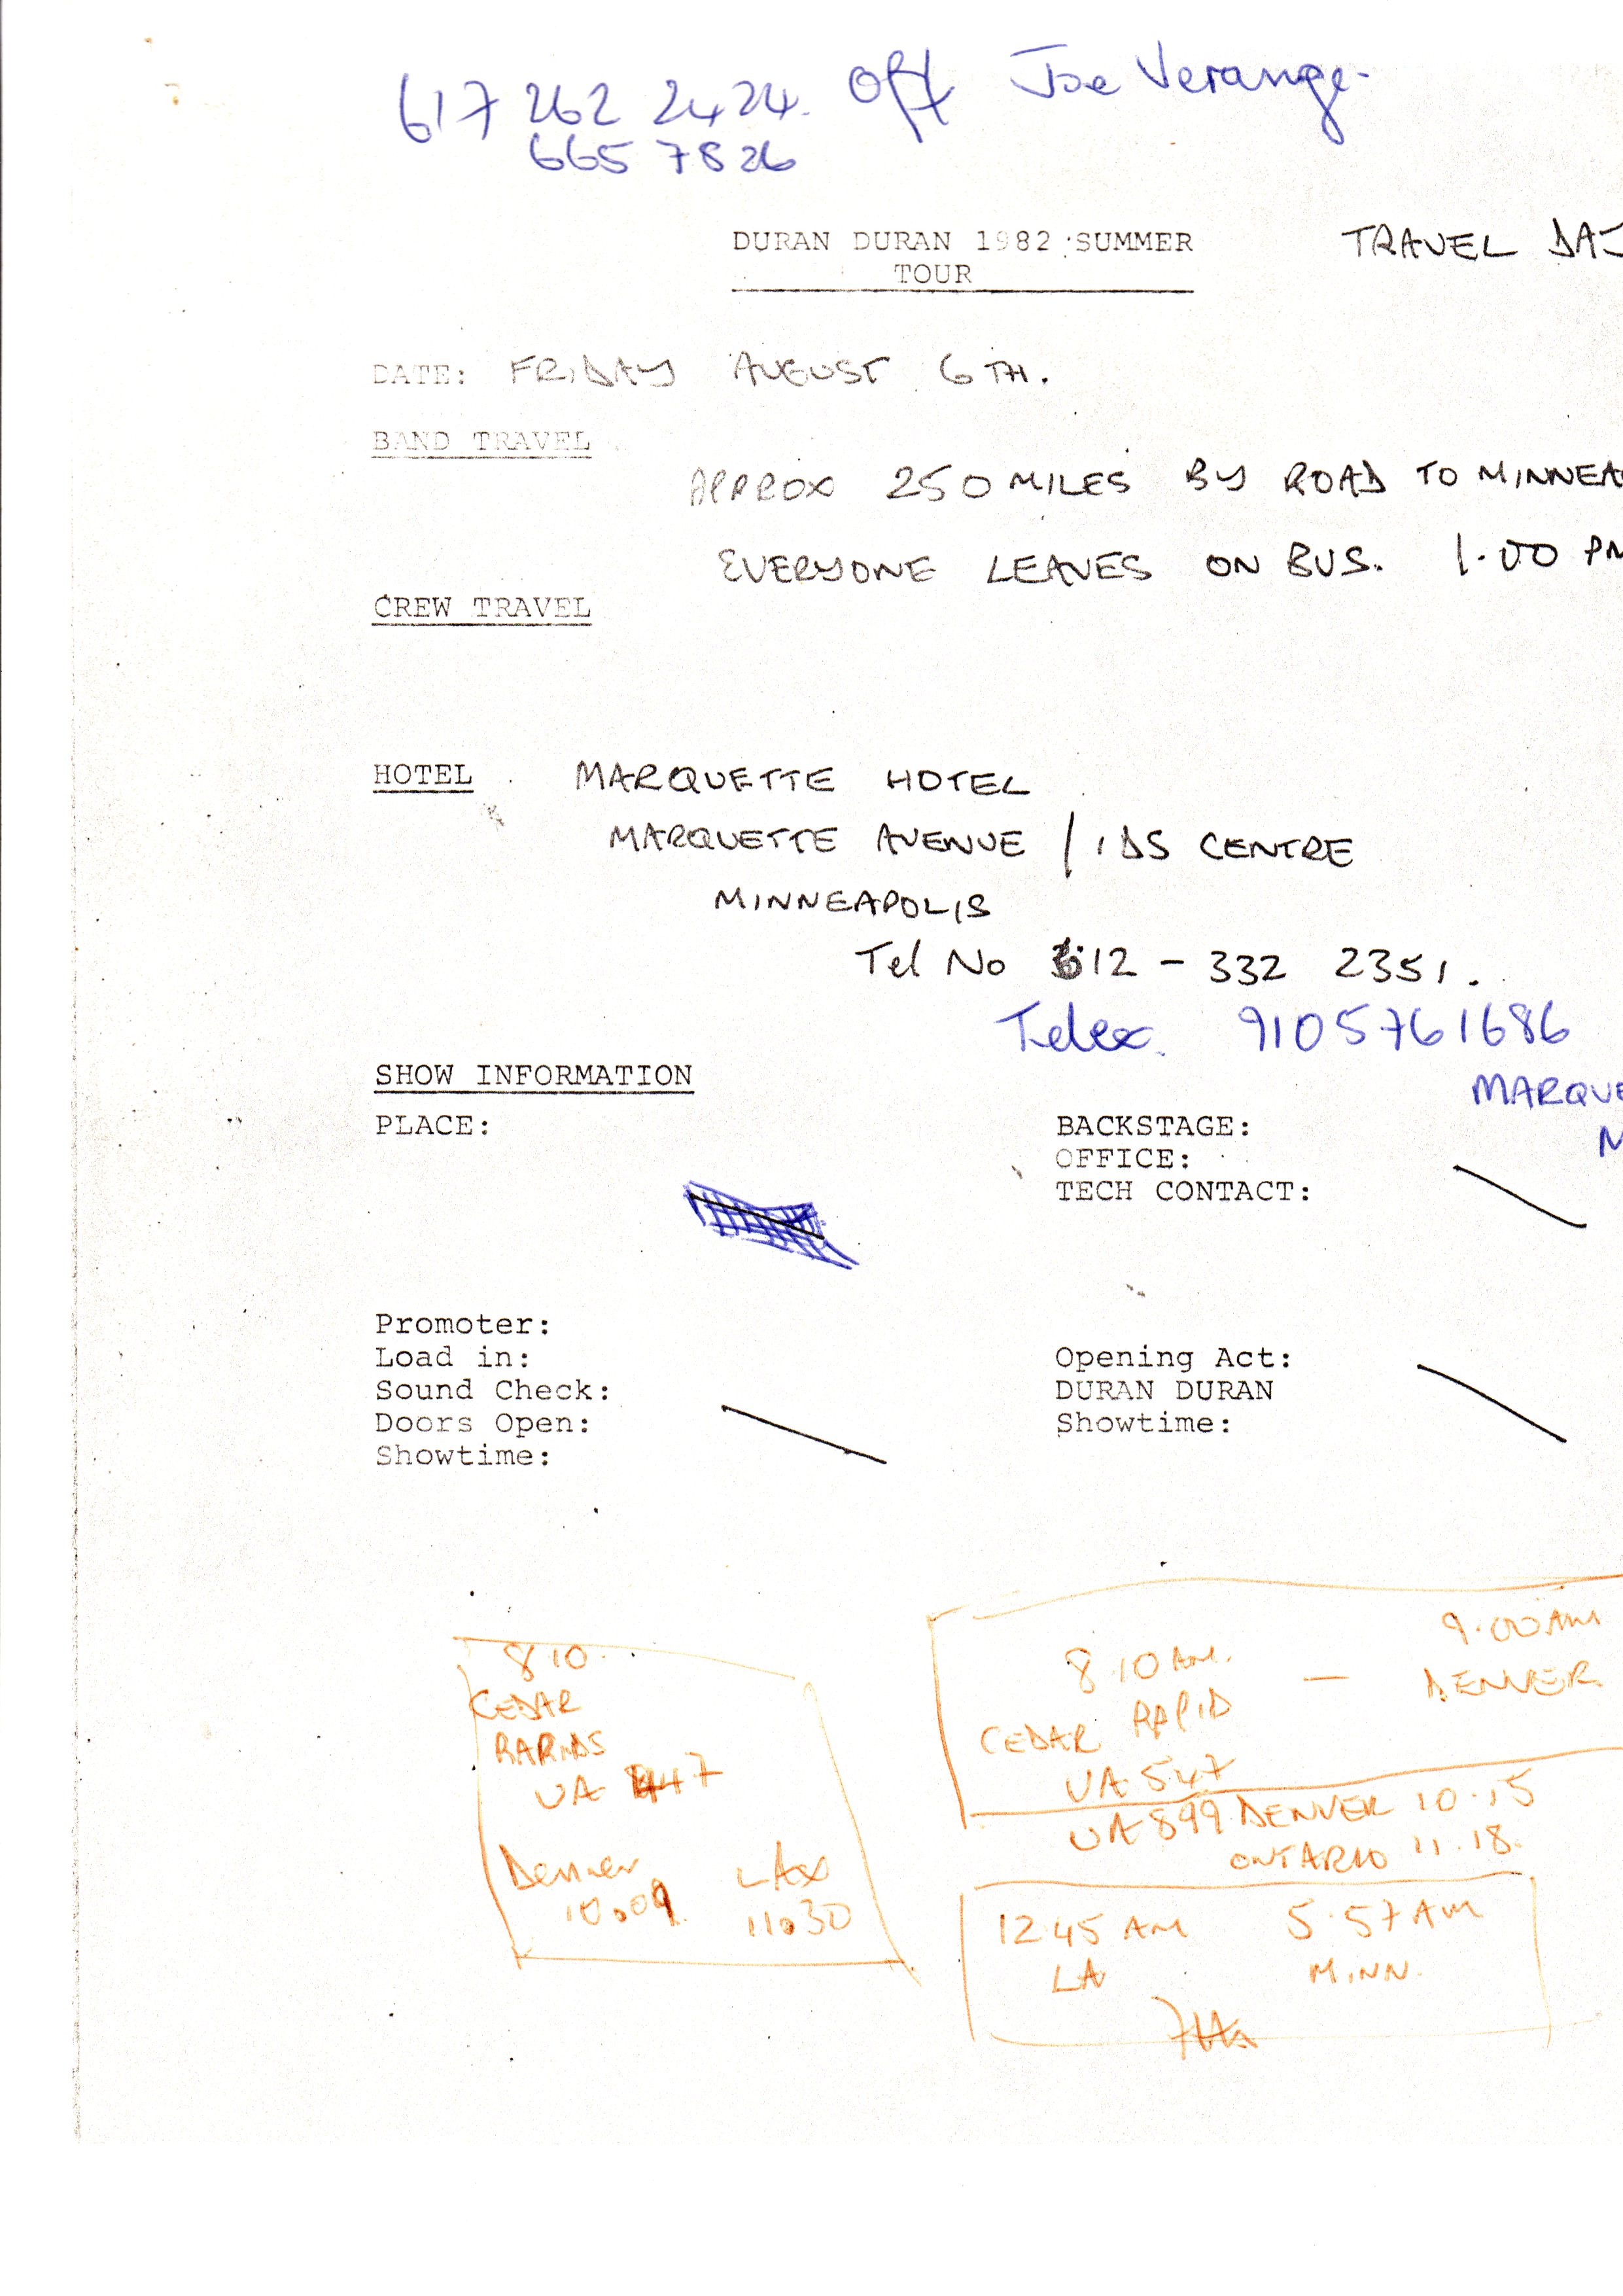 617 262 2424. Off Joe Verange.
665 7826
DURAN DURAN 1982 SUMMER
TOUR
TRAVEL DA
DATE: FRIDAY AUGUST 6TH.
BAND TRAVEL
APPROX 250 MILES BY ROAD TO MINNEA
EVERYONE LEAVES ON BUS. 1.00 PM
CREW TRAVEL
HOTEL MARQUETTE HOTEL
MARQUETTE AVENUE / IDS CENTRE
MINNEAPOLIS
Tel No 612 - 332 2351.
Telex. 9105761686
SHOW INFORMATION
MARQUE
M
PLACE:
BACKSTAGE:
OFFICE:
TECH CONTACT:
Promoter:
Load in:
Sound Check:
Doors Open:
Showtime:
Opening Act:
DURAN DURAN
Showtime:
8.10
CEDAR
RAPIDS
UA 447
Denver LAX
10.09 11.30
9.00 AM
8.10 AM. — DENVER
CEDAR RAPID
UA 547
UA 899 DENVER 10.15
ONTARIO 11.18.
12.45 AM 5.57 AM
LA MINN.